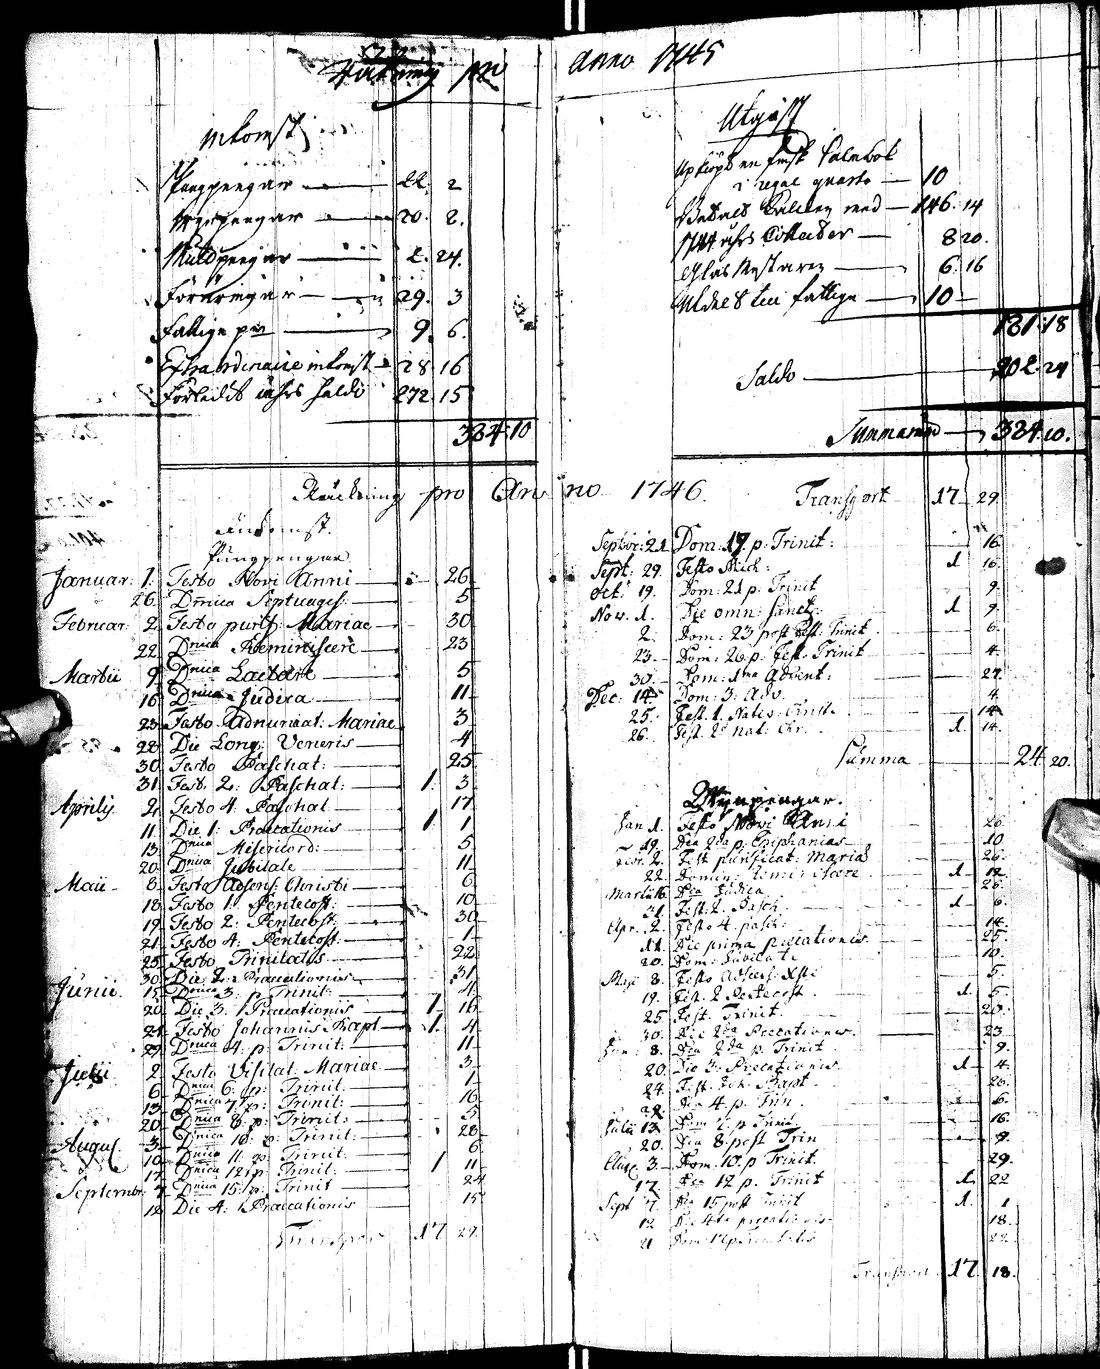 Räkning pro
inkomst
Pungpengar 22. 2
Wynpengar 20. 2.
Muldpengar 2. 24.
Foräringar 29. 3
Fattige 9. 6.
Extraordinaire inkomst 28. 16
Förledit åhrs saldo 272. 15
384:10
anno 1745
Utgift
Upköpt en finsk Psalmbok
i regal quarto 10
Betalt med 146. 14
1744 åhrs Collecter 8 20.
Glasmestaren 6. 16
Utdelt till fattiga 10
181:18
Saldo 202. 24
Summarum 384. 10.
Räckning pro Anno 1746.
Inkomst.
Pungpengar
Januar: 1. Festo Novi Anni 26
26. Dnica Septuages: 5
Februar: 2. Festo purif: Mariae 30
22. Dnica Reminiscere 23
Martii 9. Dnica Laetare 5
16. Dnica Judica 11
23. Festo Adnunciat: Mariae 3
28. Die Long: Veneris 4
30. Festo Paschat: 25
31. Fest. 2. Paschat: 1. 3
Aprilis 2. Festo 4. Paschat 17
11. Die 1. Praecationis 1. 1
13. Dnica Misericord: 5
20. Dnica Jubilate 11
Maii 8. Festo Adscens: Christi 6
18. Festo 1. Pentecost: 10
19. Festo 2. Pentecost: 30
21. Festo 4. Pentecost: 1
25. Festo Trinitatis 22
30. Die 2. Praecationis 31
Junii 15. Dnica 3. p. Trinit: 4
20. Die 3. Praecationis 1. 16
24. Festo Johannis Bapt. 1. 4
29. Dnica 4. p. Trinit: 11
Julii 2. Festo Visitat. Mariae 3
6. Dnica 6. p: Trinit: 1
13. Dnica 7. p: Trinit: 16
20. Dnica 8. p: Trinit: 5
August. 3. Dnica 10. p: Trinit: 28
10. Dnica 11. p: Trinit: 6
17. Dnica 12. p: Trinit: 1 11
Septembr: 7. Dnica 15. p: Trinit 24
12. Die 4. Praecationis 15
Transport 17 29.
Transport 17. 29.
Septbr: 21. Dom: 17 p: Trinit: 16.
Sept: 29. Festo Mich: 1 16.
Oct: 19. Dom: 21 p: Trinit 9.
Nov. 1. Die omn: sanct: 1 9.
2. Dom: 23 post Fest. Trinit 6.
23. Dom: 26 p. Fest. Trinit 4.
30. Dom: 1ma Advent:
Dec: 14. Dom: 3. Adv. 4.
25. Fest. 1. Nativ: Christ. 14.
26. Fest. 2. Nat: Chr. 1. 14.
Summa 24 20.
Wynpengar.
Jan 1. Festo Novi Anni 26.
19. Dca 2da p. Epiphanias 10
Febr. 2. Fest purificat: Maria 26.
22. Domin: Reminiscere 1. 12.
Martii 16. Dca Judica 26.
31. Fest. 2. Pasch. 1 6.
Apr. 2. Festo 4. pasch: 14.
11. Die prima precationis. 25.
20. Dom: Jubilate 10.
Maji 8. Festo Adscens: Xsti 5.
19. Fest. 2 Pentecost. 1. 5.
25. Fest. Trinit. 20.
30. Die 2da Precationis. 23.
Jun: 8. Dca 2da p. Trinit 9.
20. Die 3. Precationis 1. 4.
24. Fest. Joh: Bapt. 26.
29. Dca 4. p. Trin. 6.
Julii 13. Dom 7. p Trinit. 16.
20. Dca 8. post Trin 9.
Aug. 3. Dom. 10. p Trinit. 29.
17. Dca 12 p. Trinit 1. 22
Sept 7. Dca 15 post Trinit 1. 1
12. Die 4ta precationis 18.
21 Dom 17 p Trinitatis 22.
Transport 17. 18.